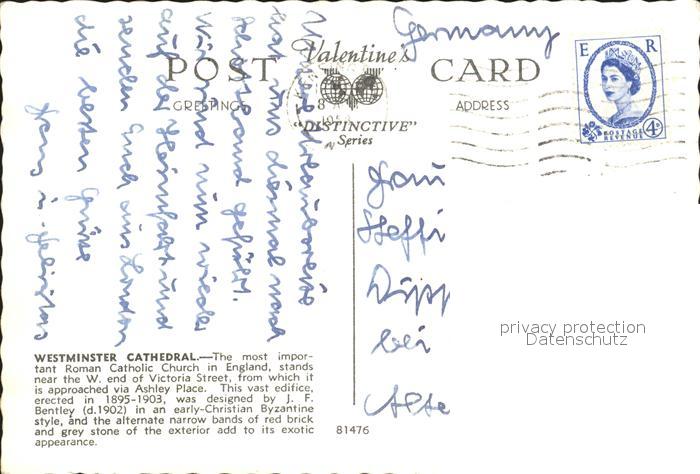 Germany
Valentine's
POST CARD
E R
GREETINGS
ADDRESS
"DISTINCTIVE"
Series
POSTAGE
REVENUE
4D
hat uns diesmal nach
geführt.
Wir sind nun wieder
auf der Heimfahrt und
senden Euch aus London
die besten Grüße
Frau
Steffi
bei
privacy protection
Datenschutz
WESTMINSTER CATHEDRAL.—The most impor-
tant Roman Catholic Church in England, stands
near the W. end of Victoria Street, from which it
is approached via Ashley Place. This vast edifice,
erected in 1895-1903, was designed by J. F.
Bentley (d.1902) in an early-Christian Byzantine
style, and the alternate narrow bands of red brick
and grey stone of the exterior add to its exotic
appearance.
81476